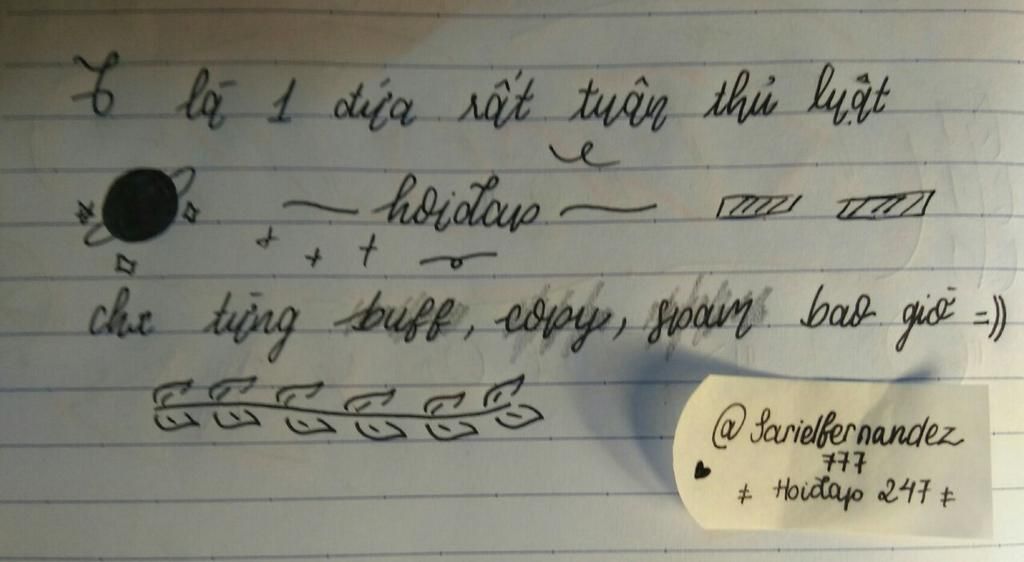 T là 1 đứa rất tuân thủ luật
hoidap
chx từng buff, copy, spam bao giờ =))
@Sarielfernandez
777
Hoidap 247